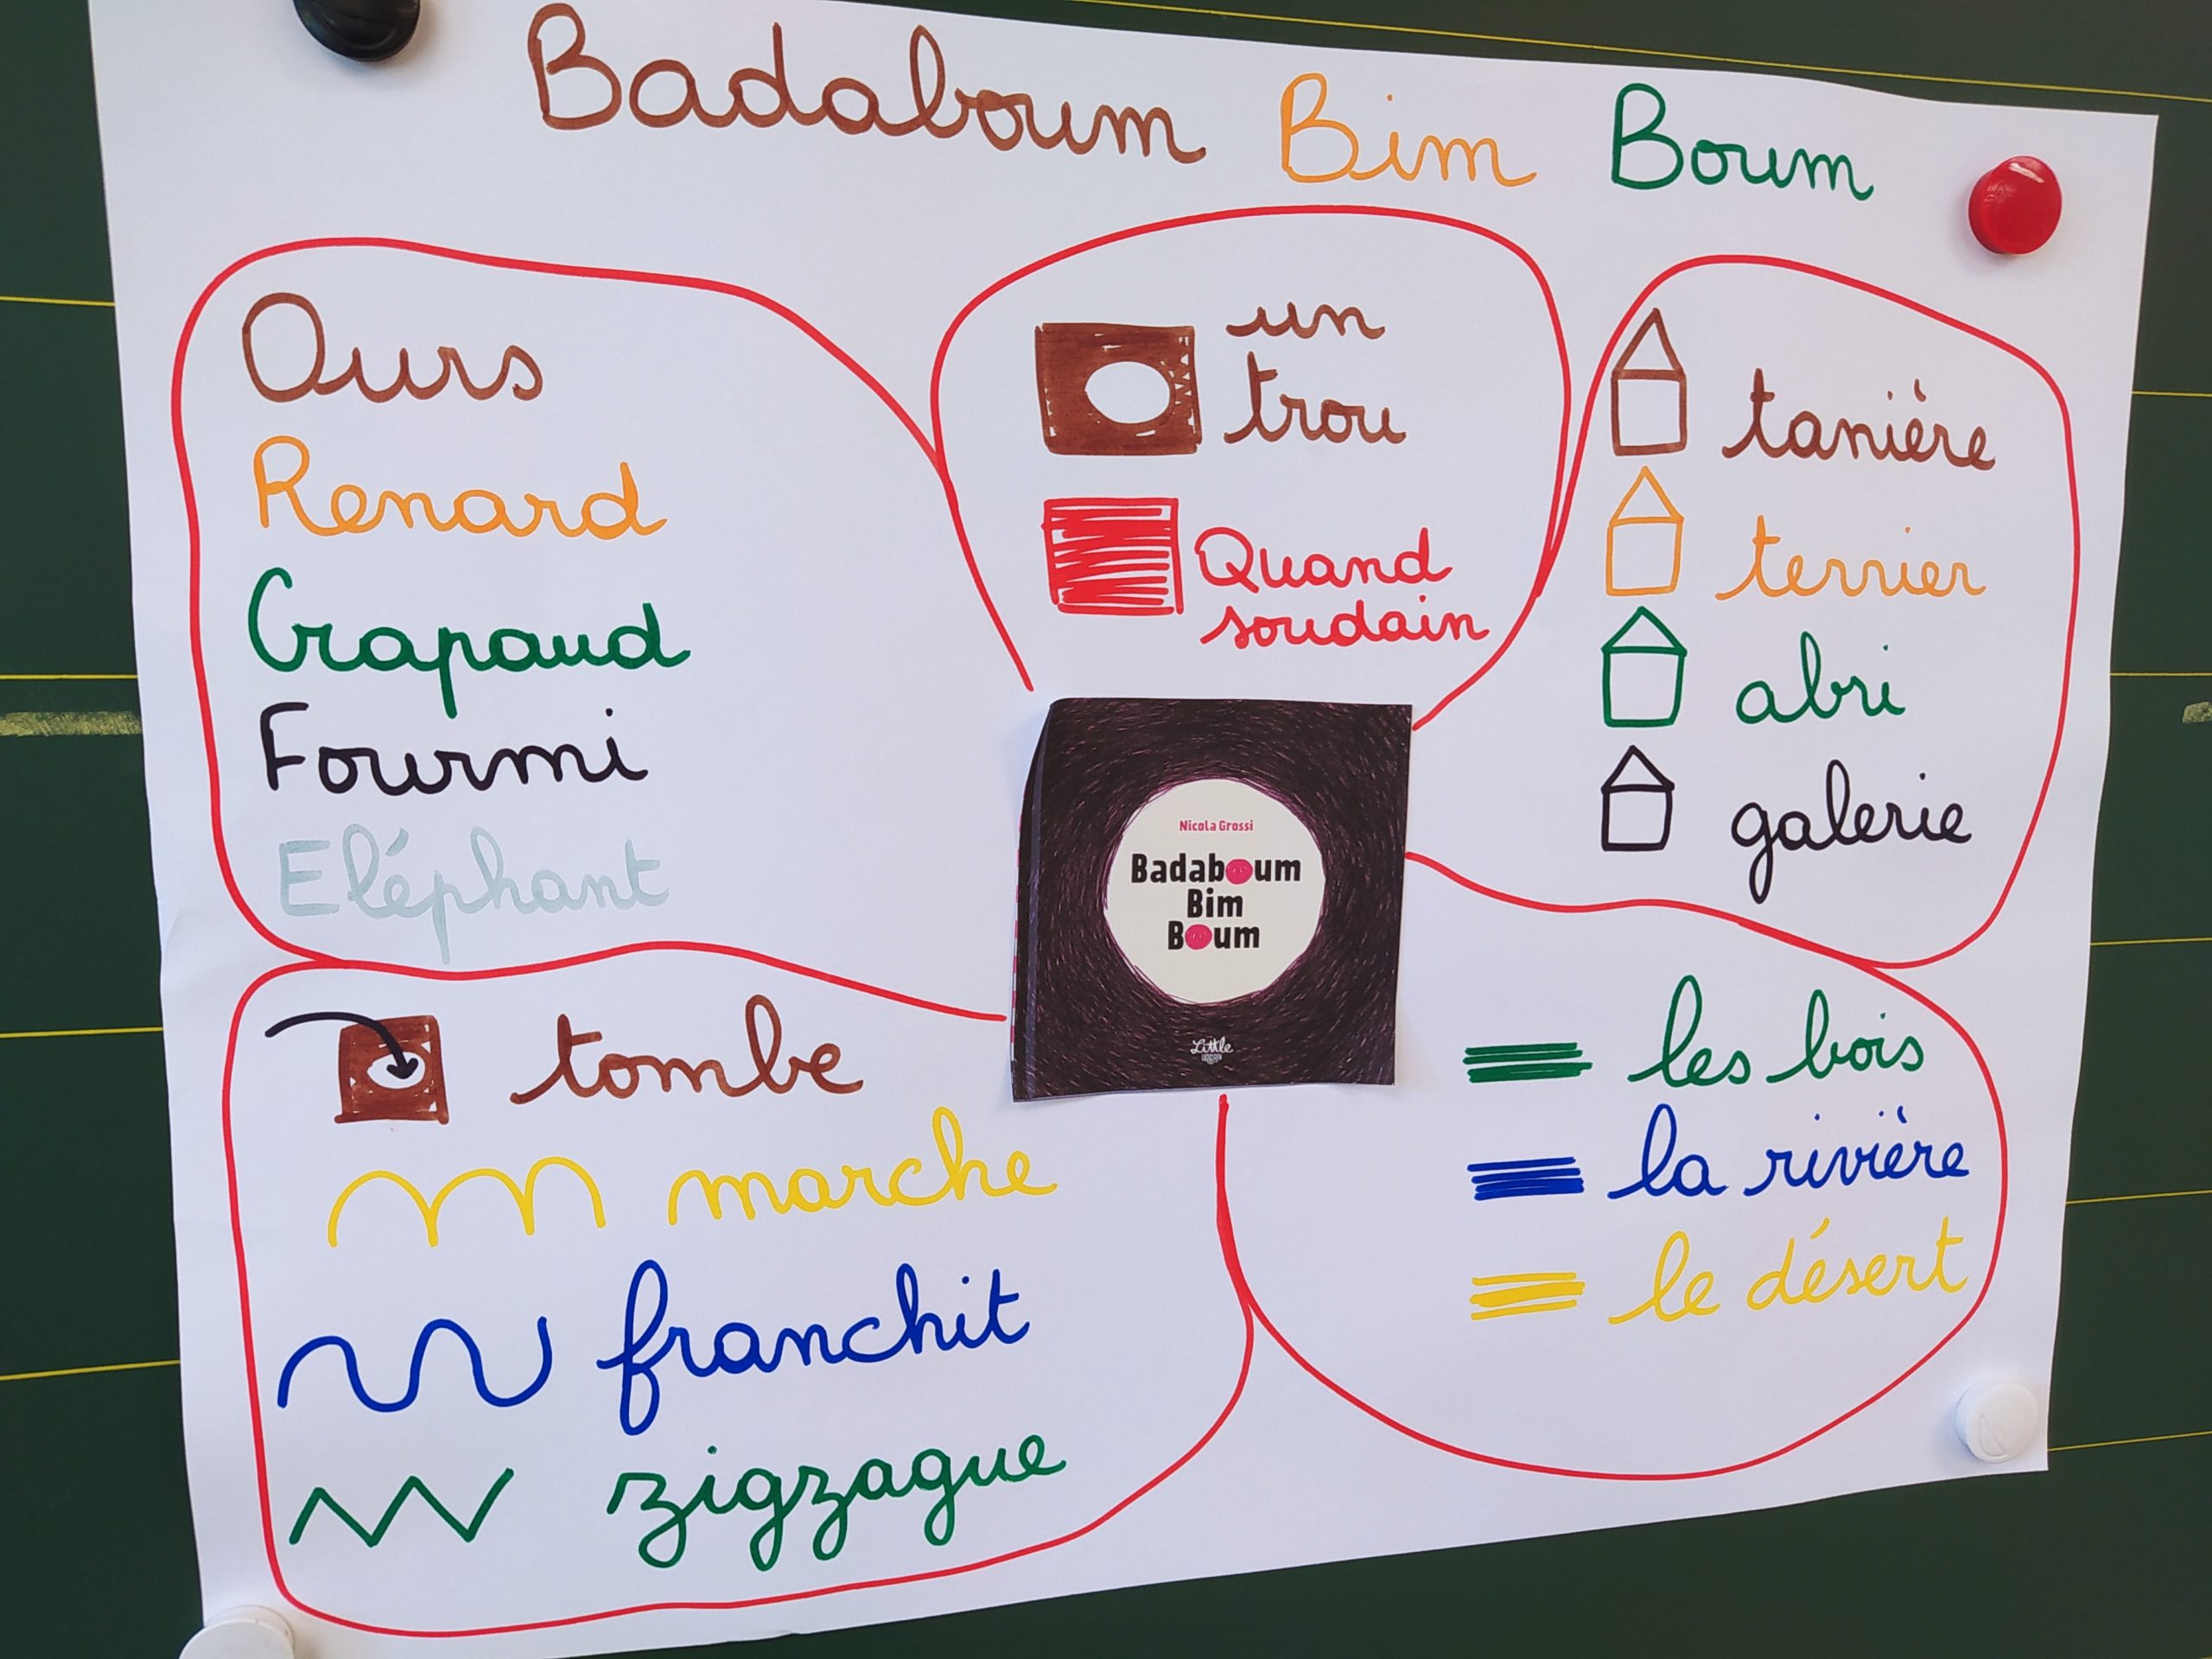 Badaboum Bim Boum
Ours
Renard
Crapaud
Fourmi
Eléphant
un
trou
Quand
soudain
tanière
terrier
abri
galerie
Nicola Grossi
Badaboum
Bim
Boum
Little
URBAN
tombe
marche
franchit
zigzague
les bois
la rivière
le désert